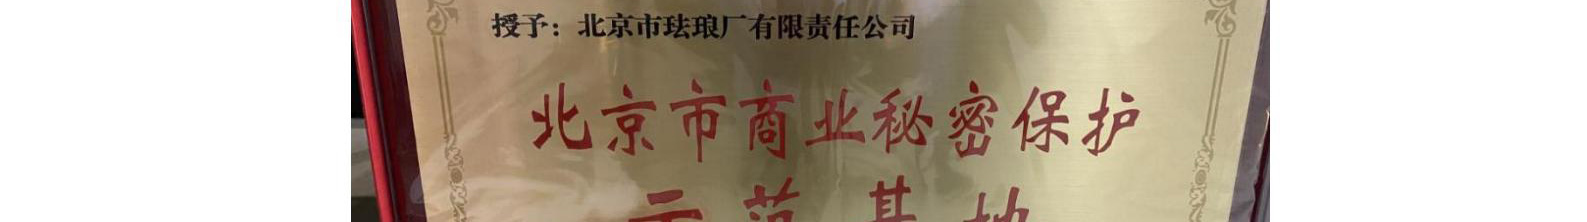 授予：北京市珐琅厂有限责任公司
北京市商业秘密保护
示范基地